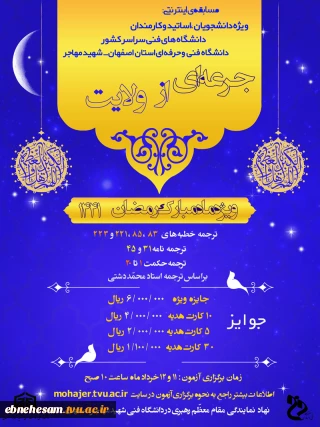 مسابقه‌ی اینترنتی:
ویژه دانشجویان، اساتید و کارمندان
دانشگاه های فنی سراسر کشور
دانشگاه فنی و حرفه‌ای استان اصفهان_ شهید مهاجر
جرعه‌ای از ولایت
ویژه ماه مبارک رمضان ۱۴۴۱
ترجمه خطبه‌های ۸۳، ۸۵، ۲۲۱ و ۲۲۳
ترجمه نامه ۳۱ و ۴۵
ترجمه حکمت ۱ تا ۲۰
بر اساس ترجمه استاد محمد دشتی
جوایز
جایزه ویژه ۶/۰۰۰/۰۰۰ ریال
۱۰ کارت هدیه ۴/۰۰۰/۰۰۰ ریال
۵ کارت هدیه ۲/۰۰۰/۰۰۰ ریال
۳۰ کارت هدیه ۱/۱۰۰/۰۰۰ ریال
زمان برگزاری آزمون: ۱۱ و ۱۲ خرداد ماه ساعت ۱۰ صبح
اطلاعات بیشتر راجع به نحوه برگزاری آزمون در سایت mohajer.tvu.ac.ir
نهاد نمایندگی مقام معظم رهبری در دانشگاه فنی شهید
ebnehesam.tvu.ac.ir